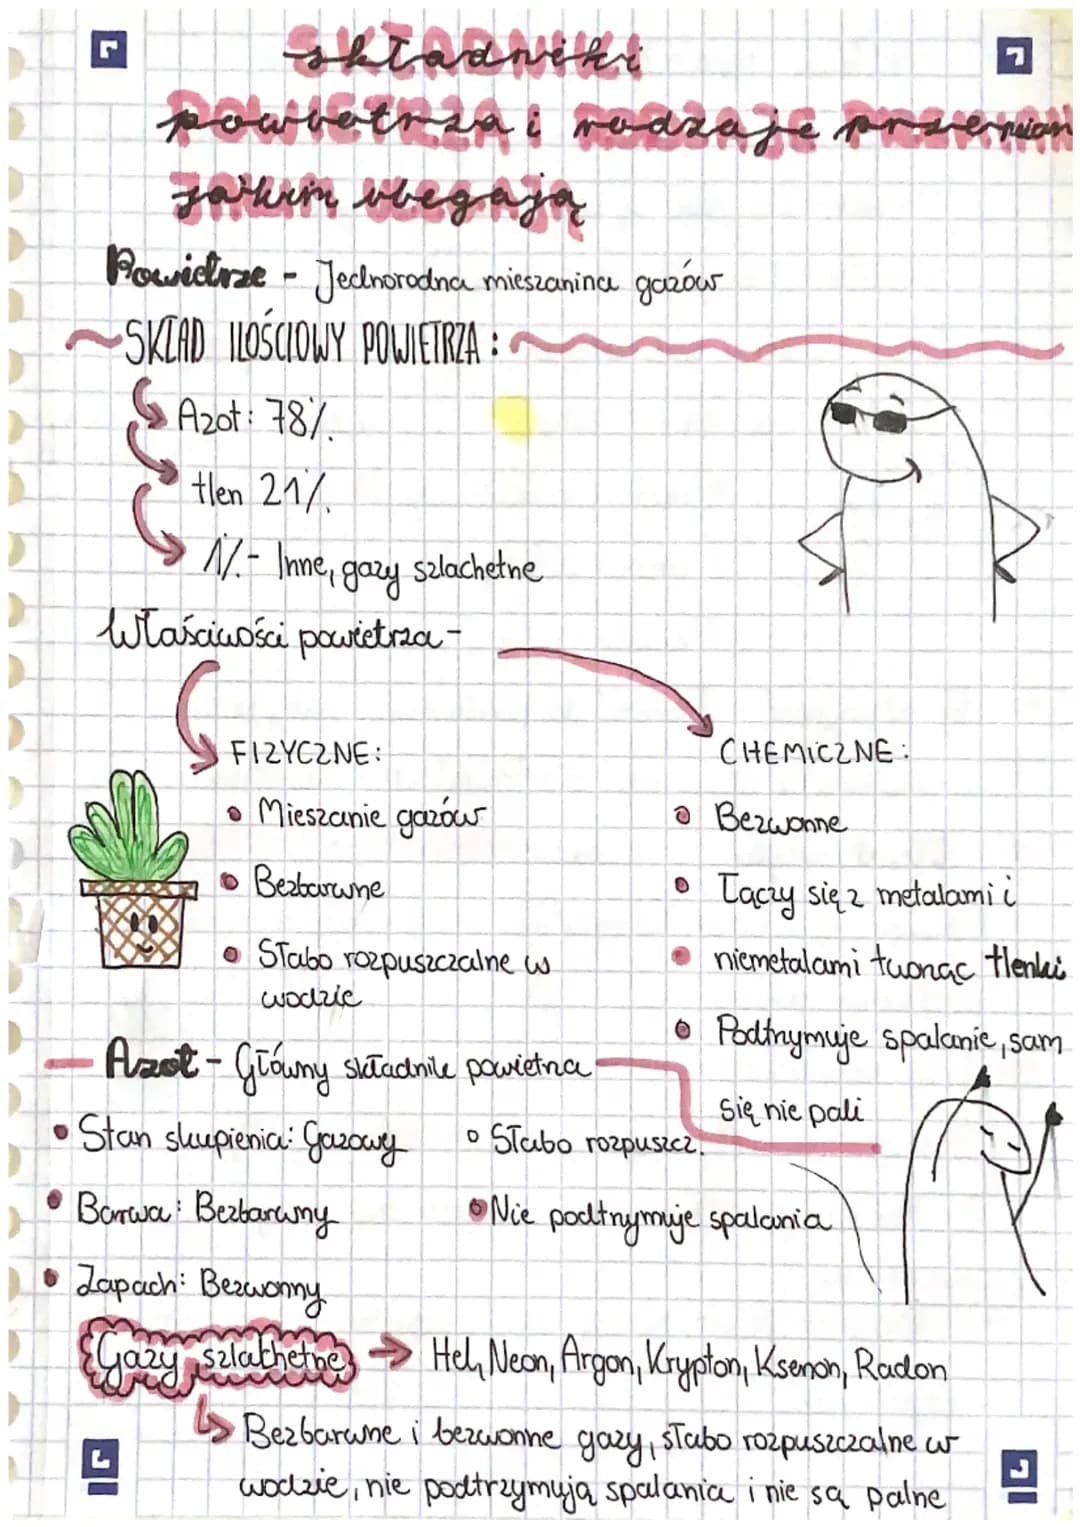 składniki
powietrza i rodzaje przemian
jakim ubegają
Powietrze - Jednorodna mieszanina gazów
SKŁAD ILOŚCIOWY POWIETRZA:
Azot: 78%.
tlen 21%.
1%.- Inne, gazy szlachetne
Właściwości powietrza-
FIZYCZNE:
• Mieszanie gazów
• Bezbarwne
• Słabo rozpuszczalne w
wodzie
CHEMICZNE:
• Bezwonne
• Łączy się z metalami i
• niemetalami tworząc tlenki
• Podtrzymuje spalanie, sam
się nie pali
Azot - Główny składnik powietrza
• Stan skupienia: Gazowy
• Barwa: Bezbarwny
• Zapach: Bezwonny
• Słabo rozpuszcz.
• Nie podtrzymuje spalania
Gazy szlachetne → Hel, Neon, Argon, Krypton, Ksenon, Radon
Bezbarwne i bezwonne gazy, słabo rozpuszczalne w
wodzie, nie podtrzymują spalania i nie są palne